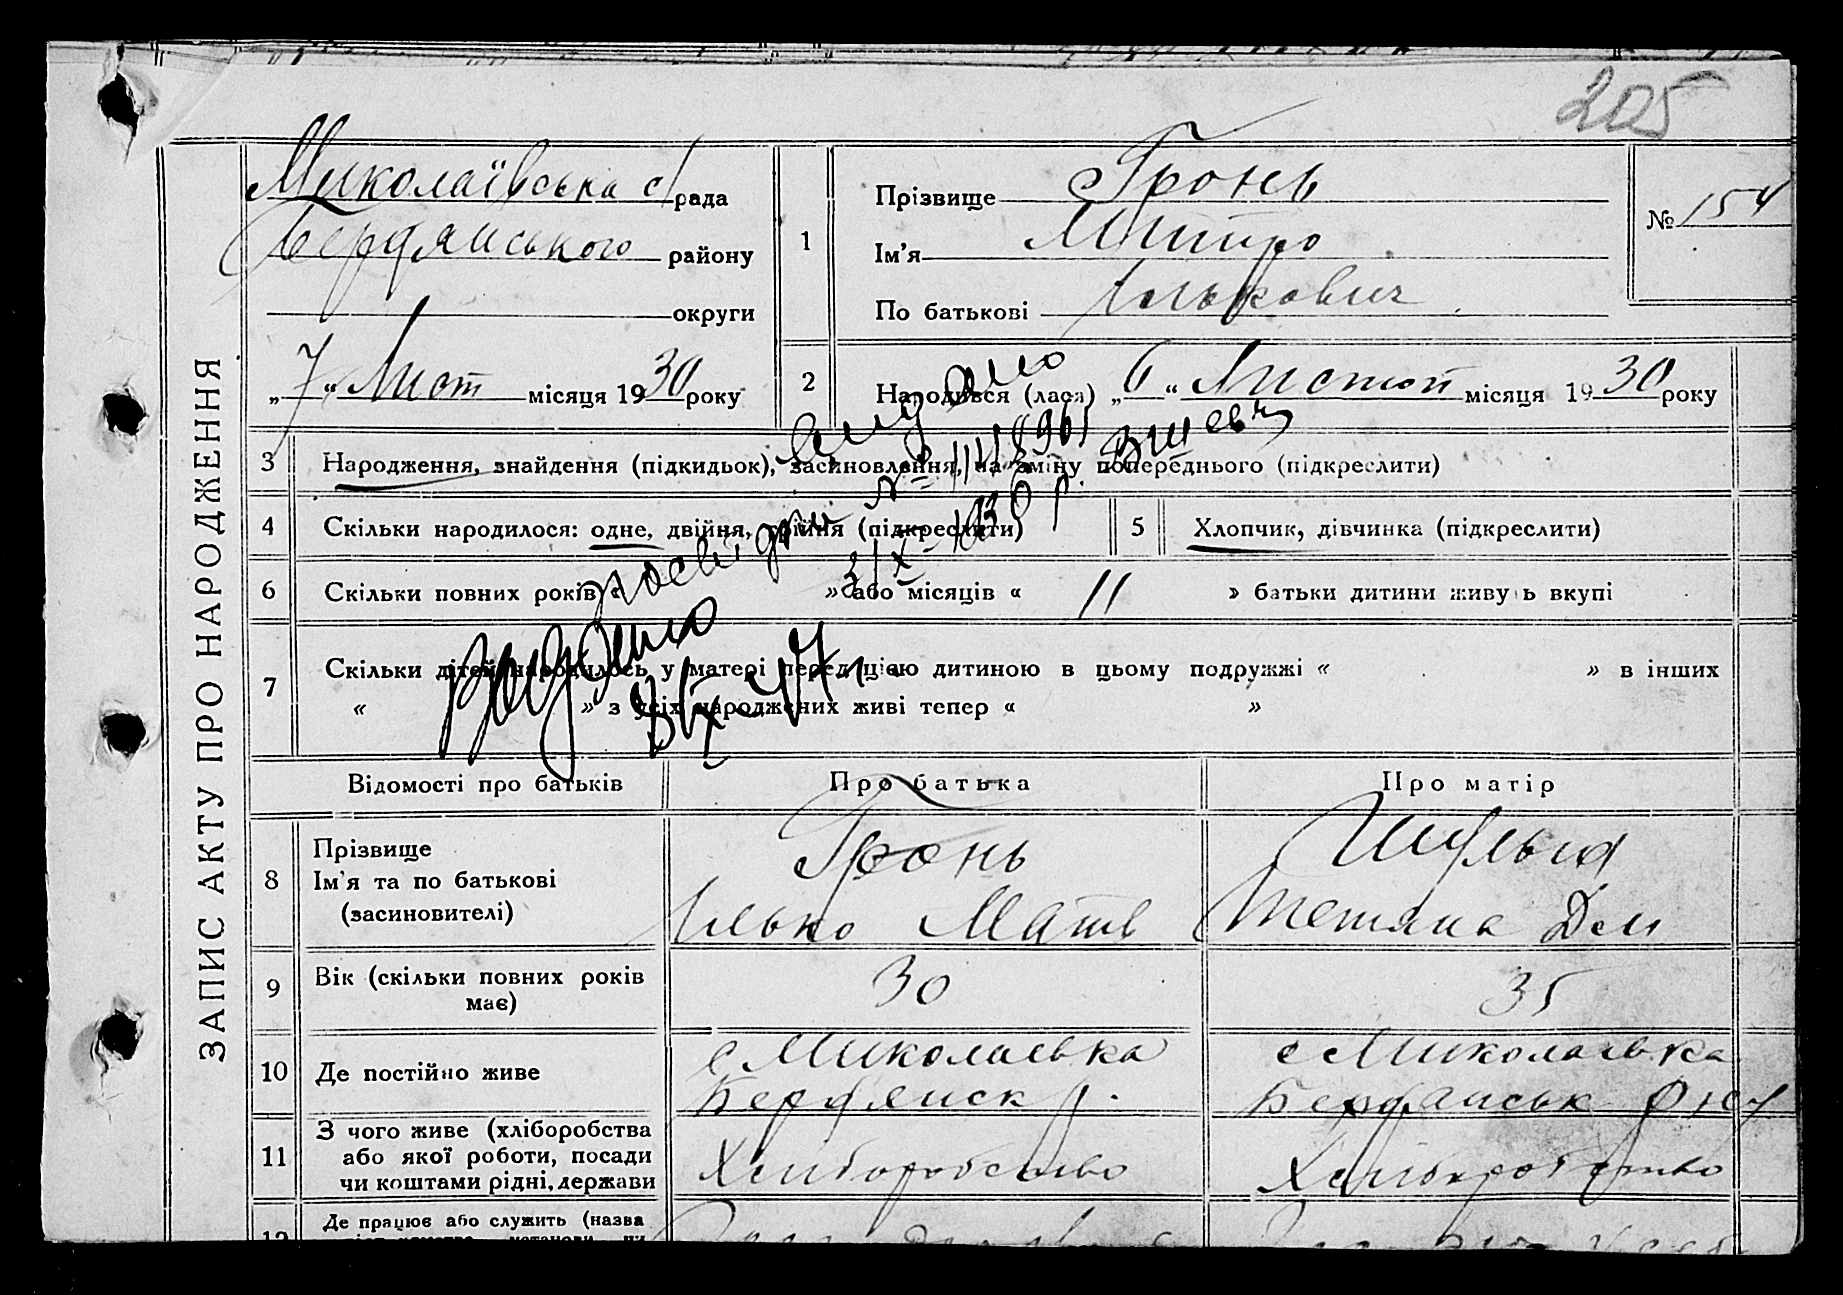 205
Миколаївська с/рада
Бердянського району
округи
„7“ Лист місяця 1930 року
1
Прізвище Гронь
Ім'я Митро
По батькові Ількович
№ 154
2
Народився (лася) „6“ Листоп місяця 1930 року
ЗАПИС АКТУ ПРО НАРОДЖЕННЯ
3 Народження, знайдення (підкидьок), засиновлення, на зміну попереднього (підкреслити)
4 Скільки народилося: одне, двійня, трійня (підкреслити)
5 Хлопчик, дівчинка (підкреслити)
6 Скільки повних років « » або місяців « 11 » батьки дитини живуть вкупі
7 Скільки дітей народилось у матері перед цією дитиною в цьому подружжі « » в інших
« » з усіх народжених живі тепер « »
Видано
Відомості про батьків
Про батька
Про матір
8 Прізвище
Ім'я та по батькові
(засиновителі)
Гронь
Ілько Матв
Шульга
Тетяна Дем
9 Вік (скільки повних років
має)
30
35
10 Де постійно живе
с Миколаевка
Бердянск р.
с Миколаевка
Бердянськ
11 З чого живе (хліборобства
або якої роботи, посади
чи коштами рідні, держави
Хлиборобство
Хлиборобство
12 Де працює або служить (назва